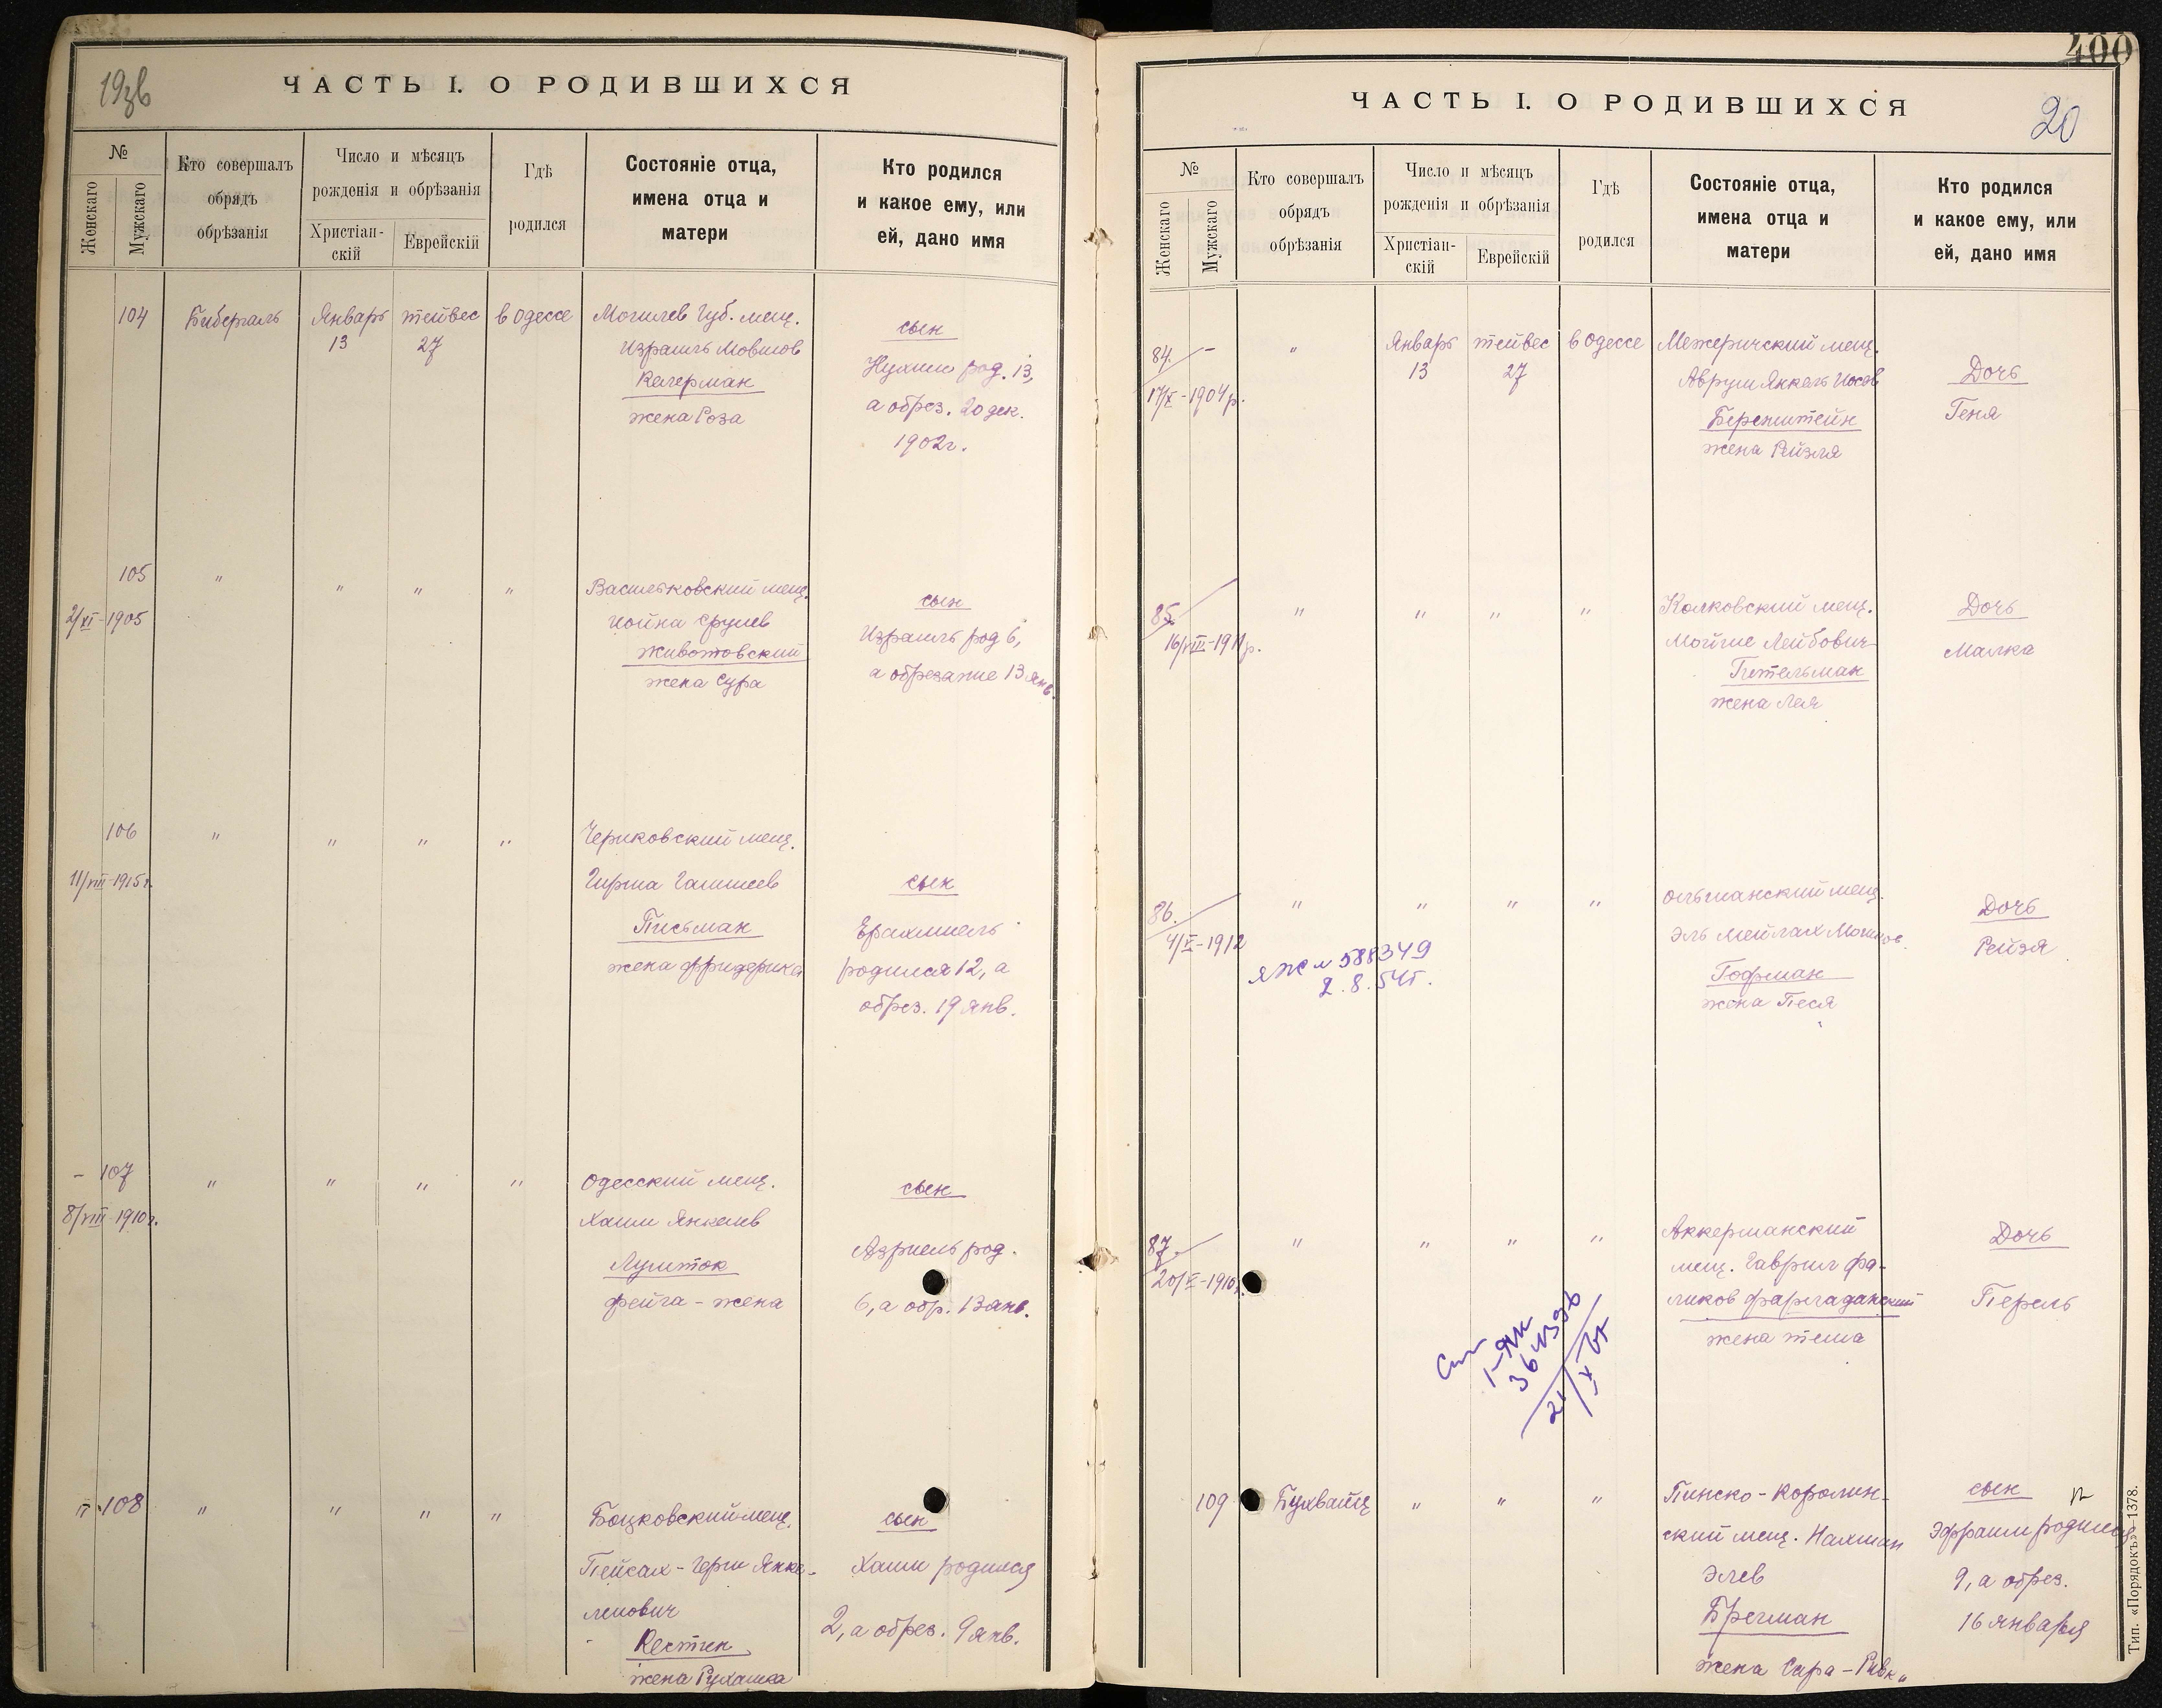 19зв
ЧАСТЬ I. О РОДИВШИХСЯ
№
Женскаго
Мужскаго
Кто совершалъ
обрядъ
обрѣзанія
Число и мѣсяцъ
рожденія и обрѣзанія
Христіан-
скій
Еврейскій
Гдѣ
родился
Состояніе отца,
имена отца и
матери
Кто родился
и какое ему, или
ей, дано имя
104
Бибергаль
Январь
13
тейвес
27
в Одессе
Могилев Губ. мещ.
Израиль Мовшов
Келерман
жена Роза
сын
Нухим род. 13,
а обрез. 20 дек.
1902г.
105
2/XI-1905
"
"
"
"
Васильковский мещ.
Иойна Срулев
Животовский
жена Сура
сын
Израиль род 6,
а обрезание 13 янв.
106
11/VIII-1915г.
"
"
"
"
Чериковский мещ.
Гирша
Письман
жена Фридерика
сын
Ерахмиель
родился 12, а
обрез. 19 янв.
- 107
8/VIII-1910г.
"
"
"
"
Одесский мещ.
Хаим Янкелев
Лумток
Фейга - жена
сын
Азриель род.
6, а обр. 13 янв.
108
"
"
"
"
Боцковский мещ.
Пейсах-Герш Янке-
лиович
Кестен
жена Рухашеа
сын
Хаим родился
2, а обрез. 9 янв.
400
ЧАСТЬ I. О РОДИВШИХСЯ
20
№
Женскаго
Мужскаго
Кто совершалъ
обрядъ
обрѣзанія
Число и мѣсяцъ
рожденія и обрѣзанія
Христіан-
скій
Еврейскій
Гдѣ
родился
Состояніе отца,
имена отца и
матери
Кто родился
и какое ему, или
ей, дано имя
84. -
17/X-1904р.
"
Январь
13
тейвес
27
в Одессе
Межеричский мещ.
Аврум Янкель Иосев
Беренштейн
жена Рейзля
Дочь
Геня
85.
16/VIII-1911р.
"
"
"
"
Колковский мещ.
Мойше Лейбович
Гительман
жена Лея
Дочь
Малка
86.
4/V-1912
"
"
"
"
Ольшанский мещ.
Эль Мейлах Мошков.
Гофман
жена Песя
Дочь
Рейзя
ЯЖ № 588349
2.8.54г.
87.
20/V-1910г.
"
"
"
"
Аккерманский
мещ. Гаврил Фа-
ликов Фаргаданский
жена Тема
Дочь
Перель
109
Бухвайц
"
"
"
Пинско-Каролин-
ский мещ. Нахман
Элев
Брегман
жена Сара-Ривк„
сын
Эфраим родился
9, а обрез.
16 января
Тип. «Порядокъ»-1378.